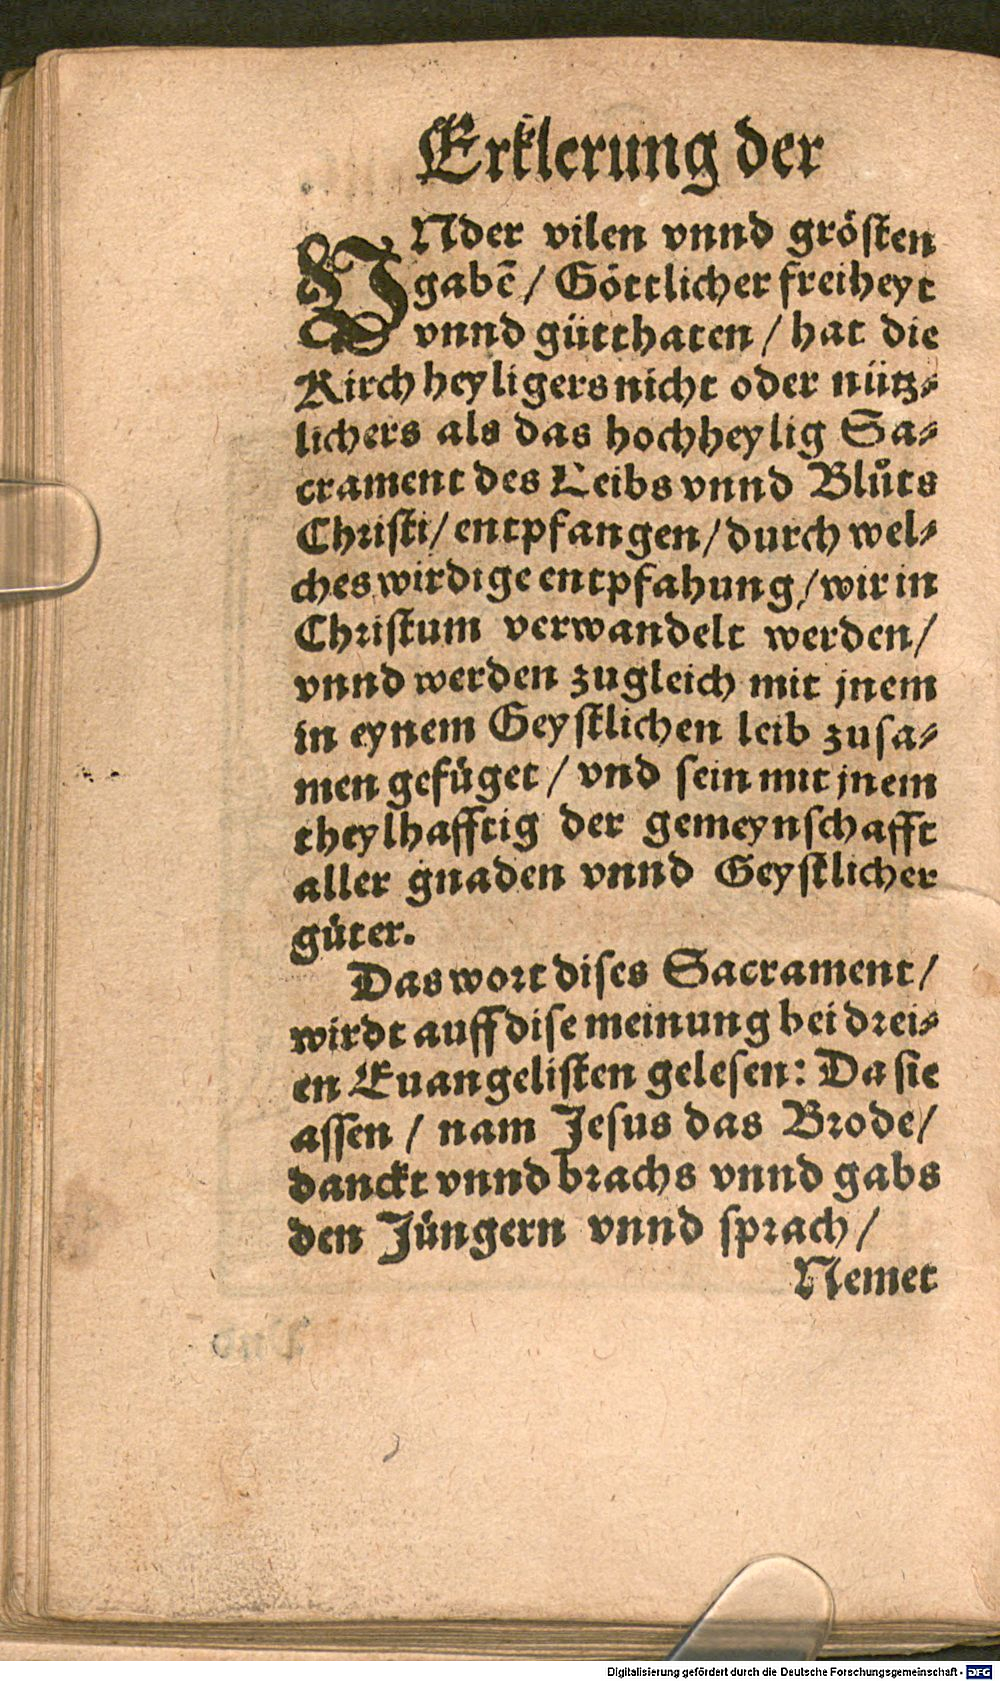 Erklerung der
VNder vilen vnnd grösten
gabē / Göttlicher freiheyt
vnnd gütthaten / hat die
Kirch heyligers nicht oder nütz⸗
lichers als das hochheylig Sa⸗
crament des Leibs vnnd Blůts
Christi / entpfangen / durch wel⸗
ches wirdige entpfahung / wir in
Christum verwandelt werden /
vnnd werden zugleich mit jnem
in eynem Geystlichen leib zusa⸗
men gefüget / vnd sein mit jnem
theylhafftig der gemeynschafft
aller gnaden vnnd Geystlicher
güter.
Das wort dises Sacrament /
wirdt auff dise meinung bei drei⸗
en Euangelisten gelesen: Da sie
assen / nam Jesus das Brode /
danckt vnnd brachs vnnd gabs
den Jüngern vnnd sprach /
Nemet
Digitalisierung gefördert durch die Deutsche Forschungsgemeinschaft - DFG